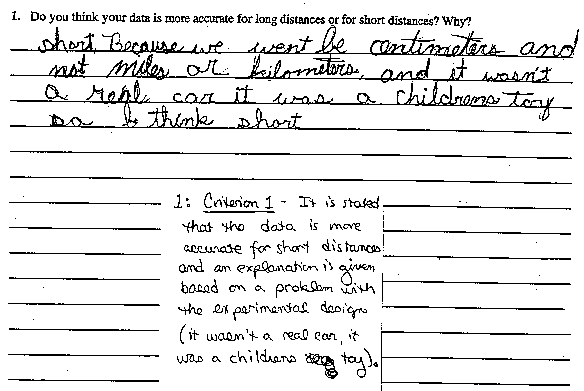 1. Do you think your data is more accurate for long distances or for short distances? Why?
short, Because we went be centimeters and
not miles or kilometers, and it wasn't
a real car it was a childrens toy
so I think short
1: Criterion 1 - It is stated
that the data is more
accurate for short distances
and an explanation is given
based on a problem with
the experimental design
(it wasn't a real car, it
was a childrens toy).